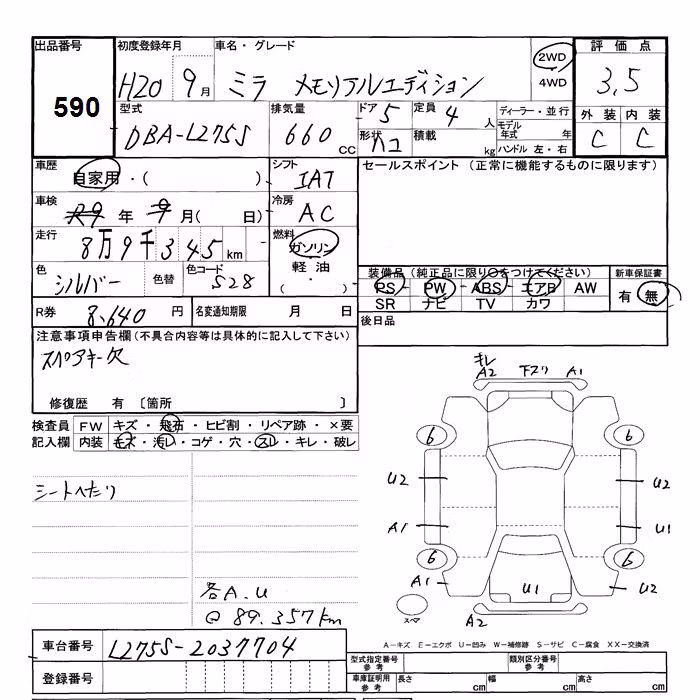 出品番号 初度登録年月 車名・グレード 評価点
590 H20 9月 ミラ メモリアルエディション 2WD 4WD 3.5
型式 排気量 ドア 5 定員 4人 ディーラー・並行 外装 内装
DBA-L275S 660 CC 形状 ハコ 積載 kg モデル年式 年 ハンドル 左・右 C C
車歴 自家用・( ) シフト IAT セールスポイント (正常に機能するものに限ります)
車検 R9年 9月( 日) 冷房 AC
走行 8万9千345km 燃料 ガソリン 軽油 ( ・ )
色 シルバー 色替 色コード S28 装備品(純正品に限り○をつけてください) 新車保証書
PS PW ABS エアB AW 有 無
SR ナビ TV カワ
R券 8,640円 名変通知期限 月 日 後日品
注意事項申告欄(不具合内容等は具体的に記入して下さい)
スペアキー欠
修復歴 有 〔箇所 〕
検査員 FW キズ・飛石・ヒビ割・リペア跡・×要
記入欄 内装 キズ・汚れ・コゲ・穴・スレ・キレ・破レ
キレ
A2 下スリ A1
6 6
U2 U2
シートヘたり
A1 U1
6 6
A1 U1 U2
各A.U
@89.357km
スペア A2
A-キズ E-エクボ U-凹み W-補修跡 S-サビ C-腐食 XX-交換済
車台番号 L275S-2037704
登録番号
型式指定番号 参考 類別区分番号 参考
車庫証明用 参考 長さ cm 幅 cm 高さ cm